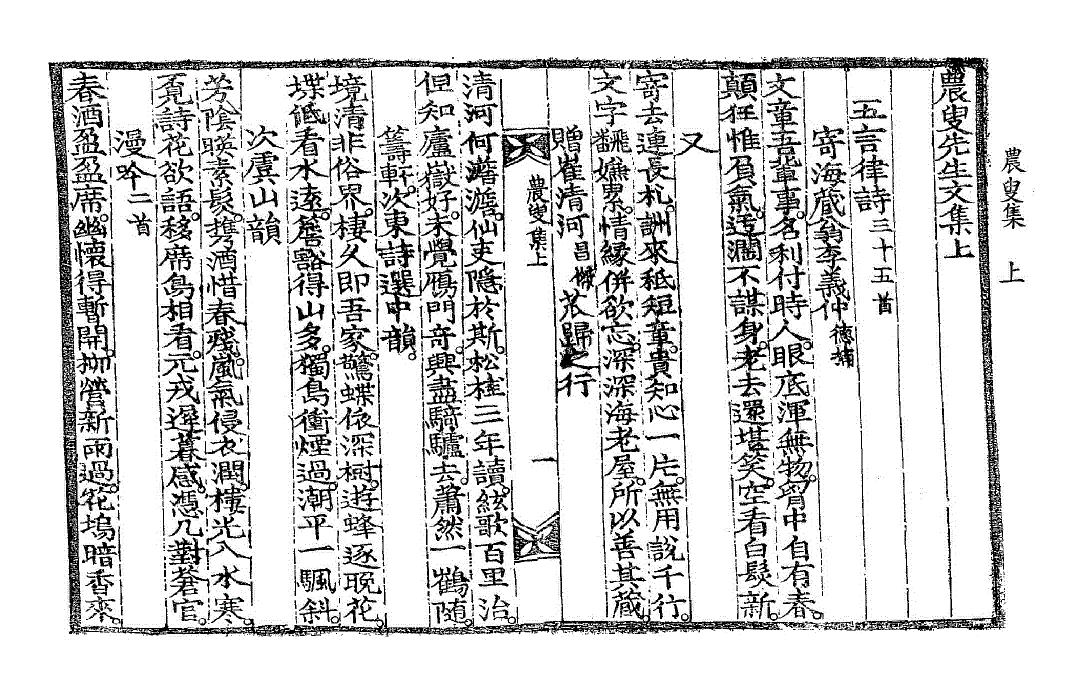 農叟集　上
農叟先生文集上
五言律詩三十五首
寄海藏翁李義仲德捕
文章吾輩事。名利付時人。眼底渾無物。胷中自有春。
顛狂惟負氣。迂濶不謀身。老去還堪笑。空看白髮新。
又
寄去連長札。訓來秪短章。貴知心一片。無用說千行。
文字飜嫌累。情緣併欲忘。深深海老屋。所以善其藏。
贈崔清河昌㦿荘歸之行
農叟集上
一
清河何瀟澹。仙吏隱於斯。松桂三年讀。絃歌百里治。
但知廬嶽好。未覺鴈門奇。興盡騎驢去。蕭然一鶴隨。
籌軒。次東詩選中韻。
境清非俗界。棲久即吾家。驚蝶依深樹。遊蜂逐晚花。
堞低看水遠。簷豁得山多。獨鳥衝煙過。潮平一颿斜。
次虞山韻
芳陰暎素髮。携酒惜春殘。嵐氣侵衣潤。樓光入水寒。
覓詩花欲語。移席鳥相看。元戎遲暮感。憑几對蒼官。
漫吟二首
春酒盈盈席。幽懷得暫開。柳營新雨過。花塢暗香來。